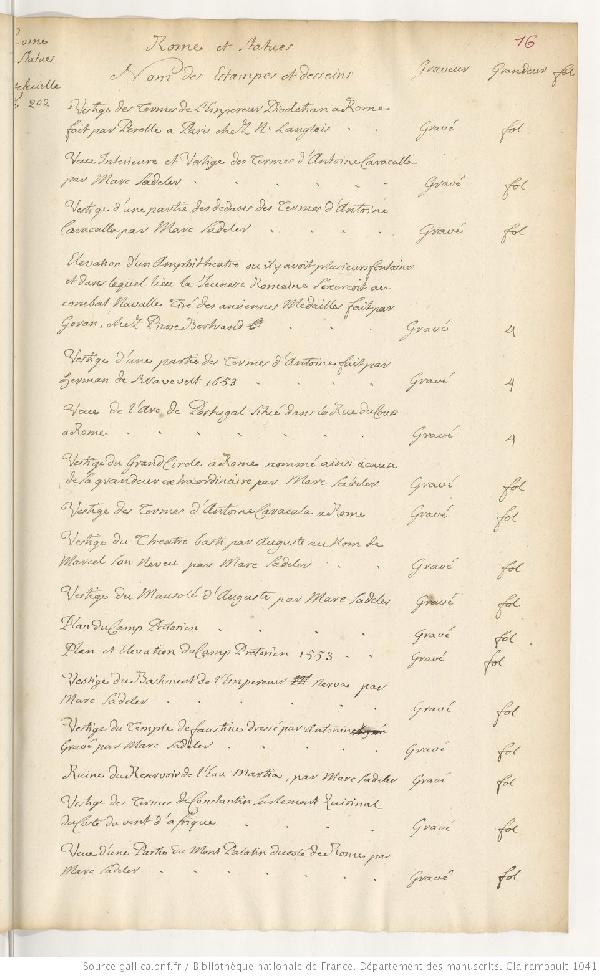 Rome
Statues
203
Rome et Statues
16
Nom des Estampes et desseins Graveur Grandeur fol
Vestige des Termes de l'Empereur Diocletian a Rome
fait par Perelle a Paris chez N. Langlois Gravé fol
Veue Interieure et Vestige des Termes d'Antoine Caracalla
par Marc Sadeler Gravé fol
Vestige d'une partie des dedans des Termes d'Antoine
Caracalla par Marc Sadeler Gravé fol
Elevation d'un Amphitheatre ou il y avoit plusieurs fontaine
et dans lequel lieu la Jeunesse Romaine s'exerçoit au
combat Navalle Tiré des anciennes Medailles fait par
chez Pierre Bertrand Gravé 4
Vestige d'une partie des Termes d'Antoine fait par
herman de 1653 Gravé 4
Veue de l'Arc de Portugal Situé dans la Rue du Cour
a Rome Gravé 4
Vestige du Grand Circle a Rome nommé ainsi acause
de sa grandeur extraordinaire par Marc Sadeler Gravé fol
Vestige des Termes d'Antoine Caracala a Rome Gravé fol
Vestige du Theatre basti par Auguste au Nom de
Marcel son Neveu par Marc Sadeler Gravé fol
Vestige du Mausolé d'Auguste par Marc Sadeler Gravé fol
Plan du Camp Pretorien Gravé fol
Plan et Elevation du Camp Pretorien 1553 Gravé fol
Vestige du Bastiment de l'Empereur Nerva par
Marc Sadeler Gravé fol
Vestige du Temple de faustine dressé par Antonin
Gravé par Marc Sadeler Gravé fol
Ruine du Reservoir de l'Eau Martia, par Marc Sadeler Gravé fol
Vestige des Termes de Constantin sur le mont Quirinal
du Costé du vent d'afrique Gravé fol
Veue d'une Partie du Mont Palatin du costé de Rome par
Marc Sadeler Gravé fol
Source gallica.bnf.fr / Bibliothèque nationale de France. Département des manuscrits. Clairambault 1041